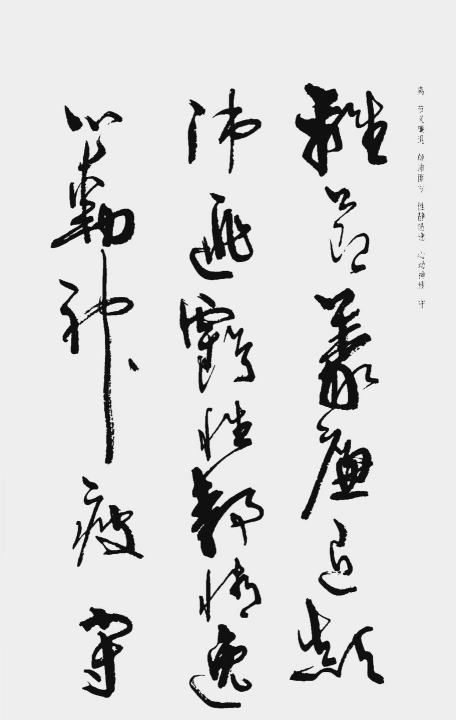 离 节义廉退 颠沛匪亏 性静情逸 心动神疲 守
離節義廉退顛
沛匪虧性靜情逸
心動神疲守